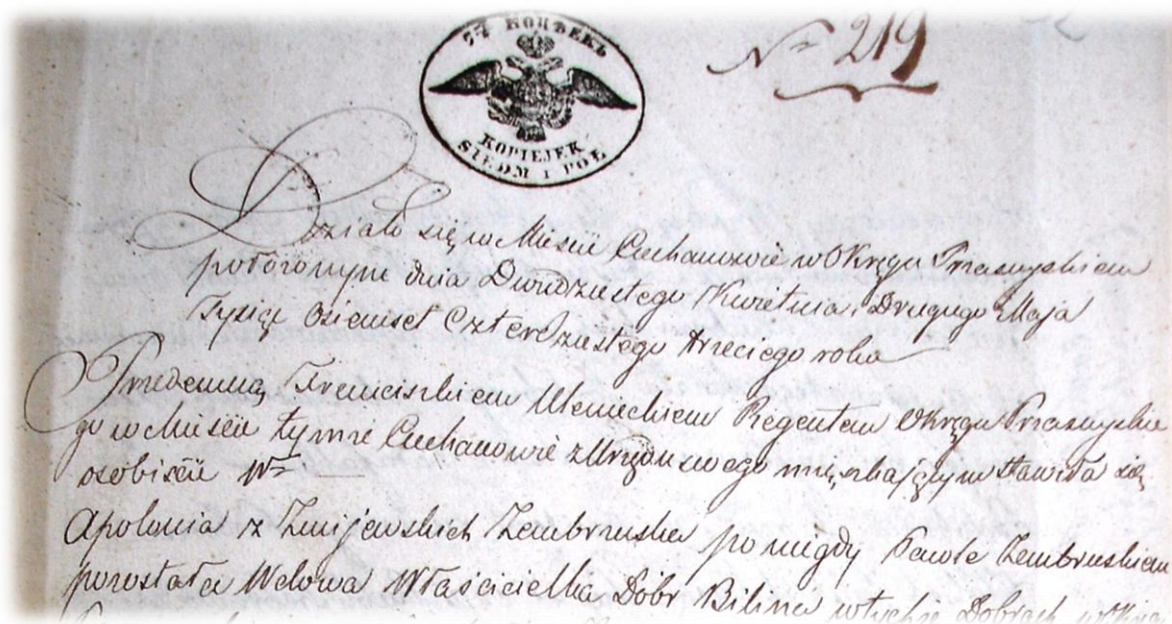 7½ КОПѢЕКЪ
KOPIEJEK
SIEDM I PÓŁ
№ 219
Działo się w Mieście Ciechanowie w Okręgu Przasnyskiem
położonym dnia Dwudziestego Kwietnia, Drugiego Maja
Tysiąc Ośiemset Czterdziestego trzeciego roku
Przedemną Franciszkiem Regentem Okręgu Przasnyskie
go w Mieście tymże Ciechanowie z Urzędu swego mięszkającym stawiła się
osobiście W
Apolonia z Żmijewskich Zembrzuska po niegdy Pawle Zembrzuskim
pozostała Wdowa Właścicielka Dóbr Bilina w tychże Dobrach